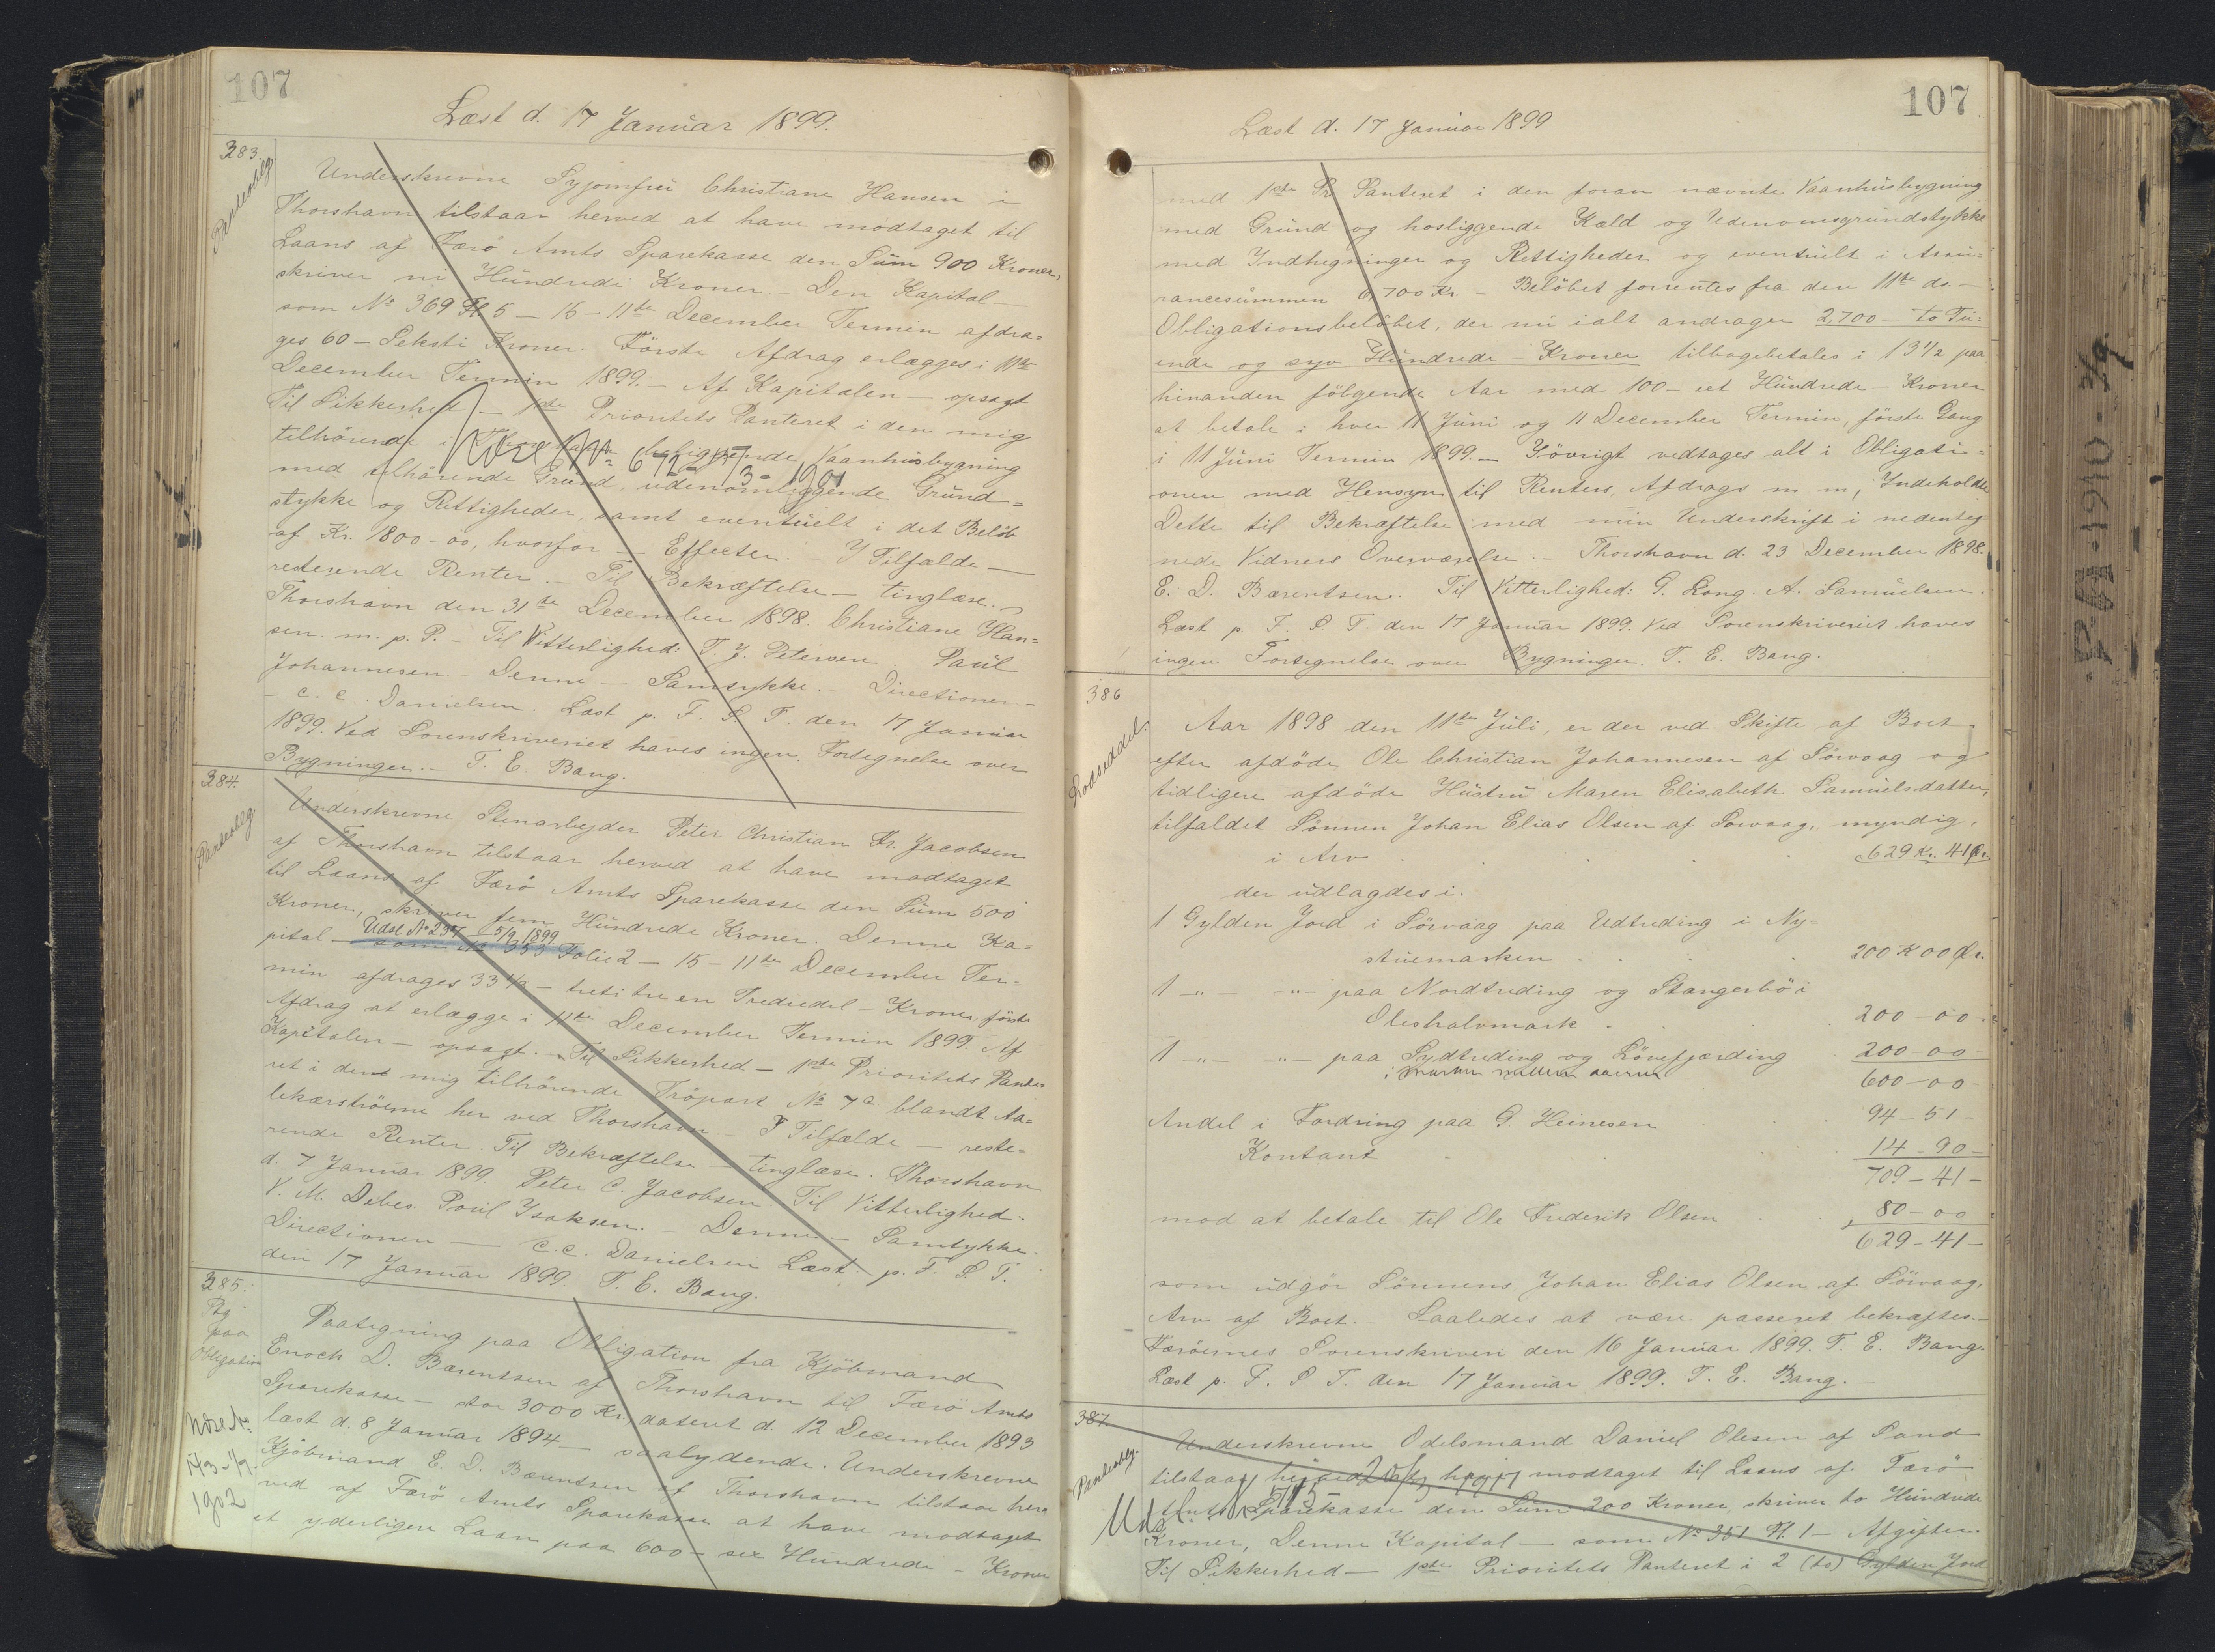 107
Læst d. 17 Januar 1899.
383.
Panteoblg.
Underskrevne Syjomfru Christiane Hansen i
Thorshavn tilstaar herved at have modtaget til
Laans af Færö Amts Sparekasse den Sum 900 Kroner,
skriver ni Hundrede Kroner – Den Kapital –
som No 369 Fl. 5 – 16 – 11te December Termin afdra=
ges 60 – Seksti Kroner. Förste Afdrag erlægges i 11te
December Termin 1899. – Af Kapitalen – opsagt
Til Sikkerhed – 1ste Prioritets Panteret i den mig
tilhörende i Thorshavn beliggende Vaanhusbygning
Nöse No 672 – 17/3 – 1901
med tilhörende Grund, udenomliggende Grund=
stykke og Rettigheder, samt eventuelt i det Belöb
af Kr. 1800-00, hvorfor – Effecter. – I Tilfælde –
resterende Renter. – Til Bekræftelse – tinglæse. –
Thorshavn den 31te December 1898. Christiane Han=
sen. m. p. P. – Til Vitterlighed: T. J. Petersen. Paul
Johannesen. Denne – Samtykke. – Directionen –
– C. C. Danielsen. Læst p. F. S. T. den 17 Januar
1899. Ved Sorenskriveriet haves ingen Fortegnelse over
Bygninger. – T. E. Bang.
384.
Panteoblg.
Underskrevne Stenarbejder Peter Christian Fr. Jacobsen
af Thorshavn tilstaar herved at have modtaget
til Laans af Færö Amts Sparekasse den Sum 500
Kroner, skriver fem Hundrede Kroner. Denne Ka=
Udsl. No 237 – 5/9 1899
pital – som No 353 Folie 2 – 15 – 11te December Ter=
min afdrages 33 1/3 – treti tre en Trediedel – Kroner, förste
Afdrag at erlægge i 11te December Termin 1899. Af
Kapitalen – opsagt. – Til Sikkerhed – 1ste Prioritets Pante=
ret i den mig tilhörende Tröpart No 7a blandt Aa=
lekærströerne her ved Thorshavn. – I Tilfælde – reste=
rende Renter. Til Bekræftelse – tinglæse. Thorshavn
d. 7 Januar 1899. Peter C. Jacobsen. Til Vitterlighed:
V. M. Debes. Poul Isaksen. – Denne – Samtykke.
Directionen – C. C. Danielsen. Læst p. F. S. T.
den 17 Januar 1899. T. E. Bang.
385.
Ptg.
paa
Obligation
Nöse No
143 – 1/9 –
1902
Paategning paa Obligation fra Kjöbmand
Enoch D. Bærentsen af Thorshavn til Færö Amts
Sparekasse – stor 3000 Kr., dateret d. 12 December 1893
læst d. 8 Januar 1894 – saalydende. Underskrevne
Kjöbmand E. D. Bærentsen af Thorshavn tilstaar her=
ved af Færö Amts Sparekasse at have modtaget
et yderligere Laan paa 600 – sex Hundrede – Kroner
107
Læst d. 17 Januar 1899
med 1ste Pr. Panteret i den foran nævnte Vaanhusbygning
med Grund og hosliggende Kæld og Udenomsgrundstykke
med Indhegninger og Rettigheder og eventuelt i Assu=
rancesummen 6,700 Kr. – Belöbet forrentes fra den 11te ds. –
Obligationsbelöbet, der nu ialt andrager 2,700 – to Tu=
ende og syv Hundrede – Kroner tilbagebetales i 13 1/2 paa
hinanden fölgende Aar med 100 – eet Hundrede – Kroner
at betale i hver 11 Juni og 11 December Termin, förste Gang
i 11 Juni Termin 1899. – Iövrigt vedtages alt i Obligati=
onen med Hensyn til Renters, Afdrags m m, Indeholdte
Dette til Bekræftelse med min Underskrift i nedenteg
nede Vidners Overværelse. – Thorshavn d. 23 December 1898.
E. D. Bærentsen. Til Vitterlighed: G. Long. A. Samuelsen.
Læst p. F. S. T. den 17 Januar 1899. Ved Sorenskriveriet haves
ingen Fortegnelse over Bygninger. T. E. Bang.
386
Lodseddel.
Aar 1898 den 11te Juli, er der ved Skifte af Boet
efter afdöde Ole Christian Johannesen af Sörvaag og
tidligere afdöde Hustru Maren Elisabeth Samuelsdatter,
tilfaldet Sönnen Johan Elias Olsen af Sörvaag, myndig,
i Arv . . . . . 629 Kr. 41 Ör.
der udlagdes i.
1 Gylden Jord i Sörvaag paa Udtreding i Ny=
stuemarken . . . 200 K 00 Ör.
1 –"– –"– paa Nordtreding og Stangerbö i
Oleshalvmark . . 200 – 00 –
1 –"– –"– paa Sydtreding og Lönefjærding . 200 – 00
i marken mellem aaerne
600 – 00
Andel i Fordring paa G. Heinesen . . 94 – 51 –
Kontant . . . 14 – 90 –
709 – 41 –
mod at betale til Ole Frederik Olsen . . 80 – 00
629 – 41 –
som udgör Sönnens Johan Elias Olsen af Sörvaag,
Arv af Boet. – Saaledes at være passeret bekræftes. –
Færöernes Sorenskriveri den 16 Januar 1899. T. E. Bang.
Læst p. F. S T. den 17 Januar 1899. T. E. Bang.
387.
Panteoblg.
Underskrevne Odelsmand Daniel Olesen af Sand
tilstaar herved at have modtaget til Laans af Færö
Amts Sparekasse den Sum 200 Kroner, skriver to Hundrede
Kroner, Denne Kapital – som No 351 Fl. 1 – Afgifter.
Til Sikkerhed – 1ste Prioritets Panteret i 2 (to) Gylden Jord